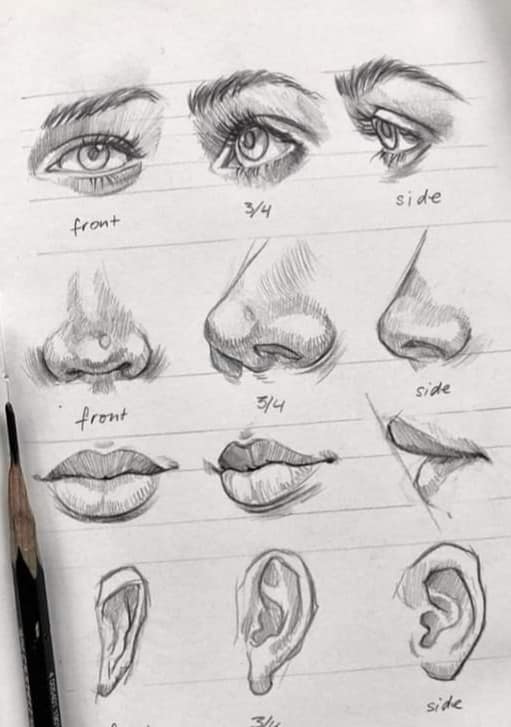 front
3/4
side
front
3/4
side
3/4
side